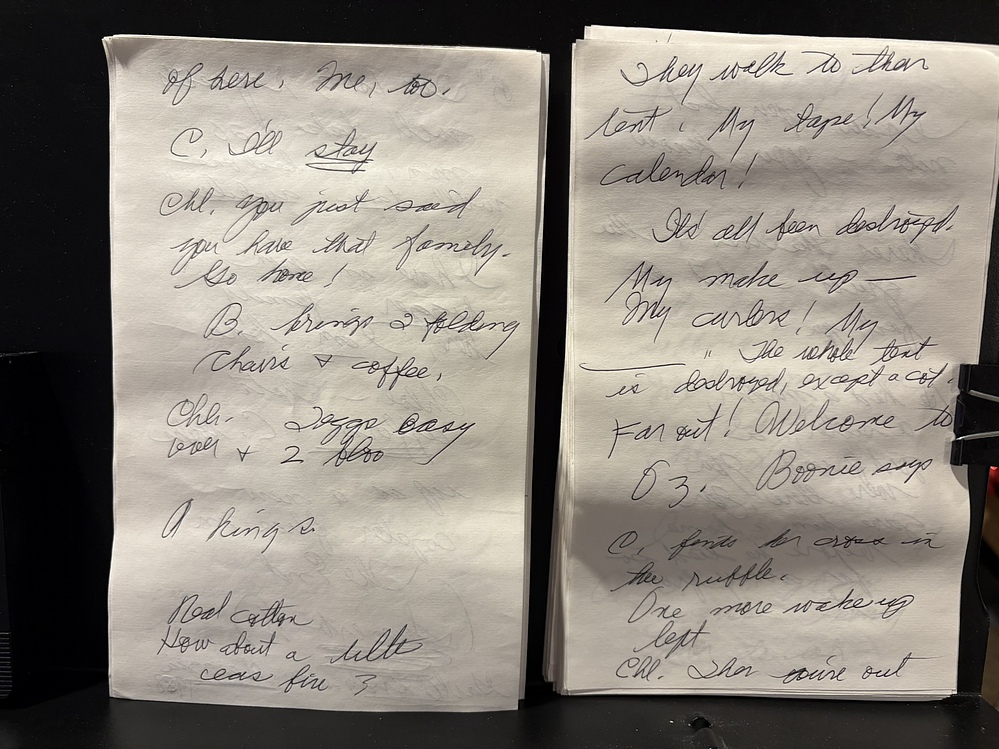 of here. Me, too.
C, I'll stay
Chl. you just said
you have that family.
Go home!
B. brings 2 folding
chairs & coffee.
Chl. 2 eggs easy
over & 2
A
Red cotton
How about a
ceas fire
They walk to their
tent. My tape! My
calendar!
It's all been destroyed.
My make up —
My curlers! My
" The whole tent
is destroyed, except a cot.
Far out! Welcome to
Oz. Boonie says
C. finds her cross in
the rubble.
One more wake up
left
Chl. Then you're out